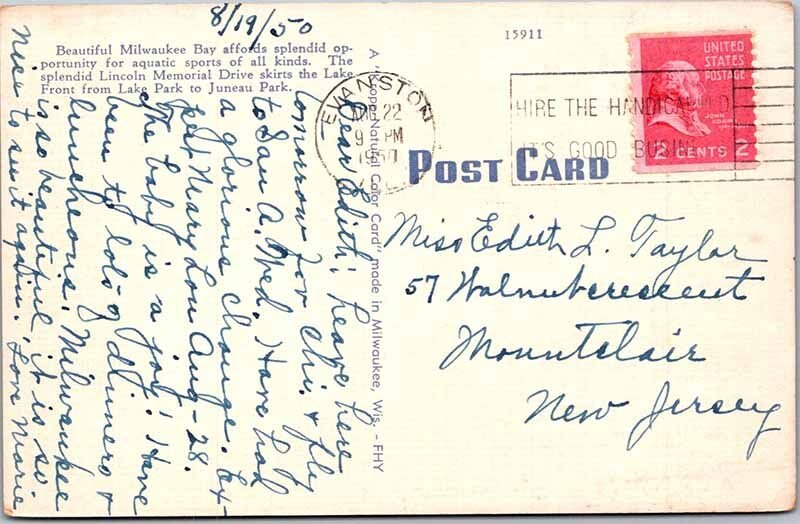 8/19/50
15911
Beautiful Milwaukee Bay affords splendid op-
portunity for aquatic sports of all kinds. The
splendid Lincoln Memorial Drive skirts the Lake
Front from Lake Park to Juneau Park.
A "Kropp Natural Color Card" made in Milwaukee, Wis. - FHY
EVANSTON
AUG 22
9 PM
1950
HIRE THE HANDICAPPED
IT'S GOOD BUSINESS
UNITED
STATES
POSTAGE
JOHN
ADAMS
2 CENTS 2
POST CARD
Miss Edith L. Taylor
57 Walnut crescent
Mountclair
New Jersey
Dear Edith; leave here
tomorrow for Chi. & fly
to San A. Wed. Have had
a glorious change. Ex-
pect Mary Lou Aug-28.
The baby is a joy! Have
been to lots of dinners &
luncheons. Milwaukee
is so beautiful, it is so
nice to see it again. Love Marie